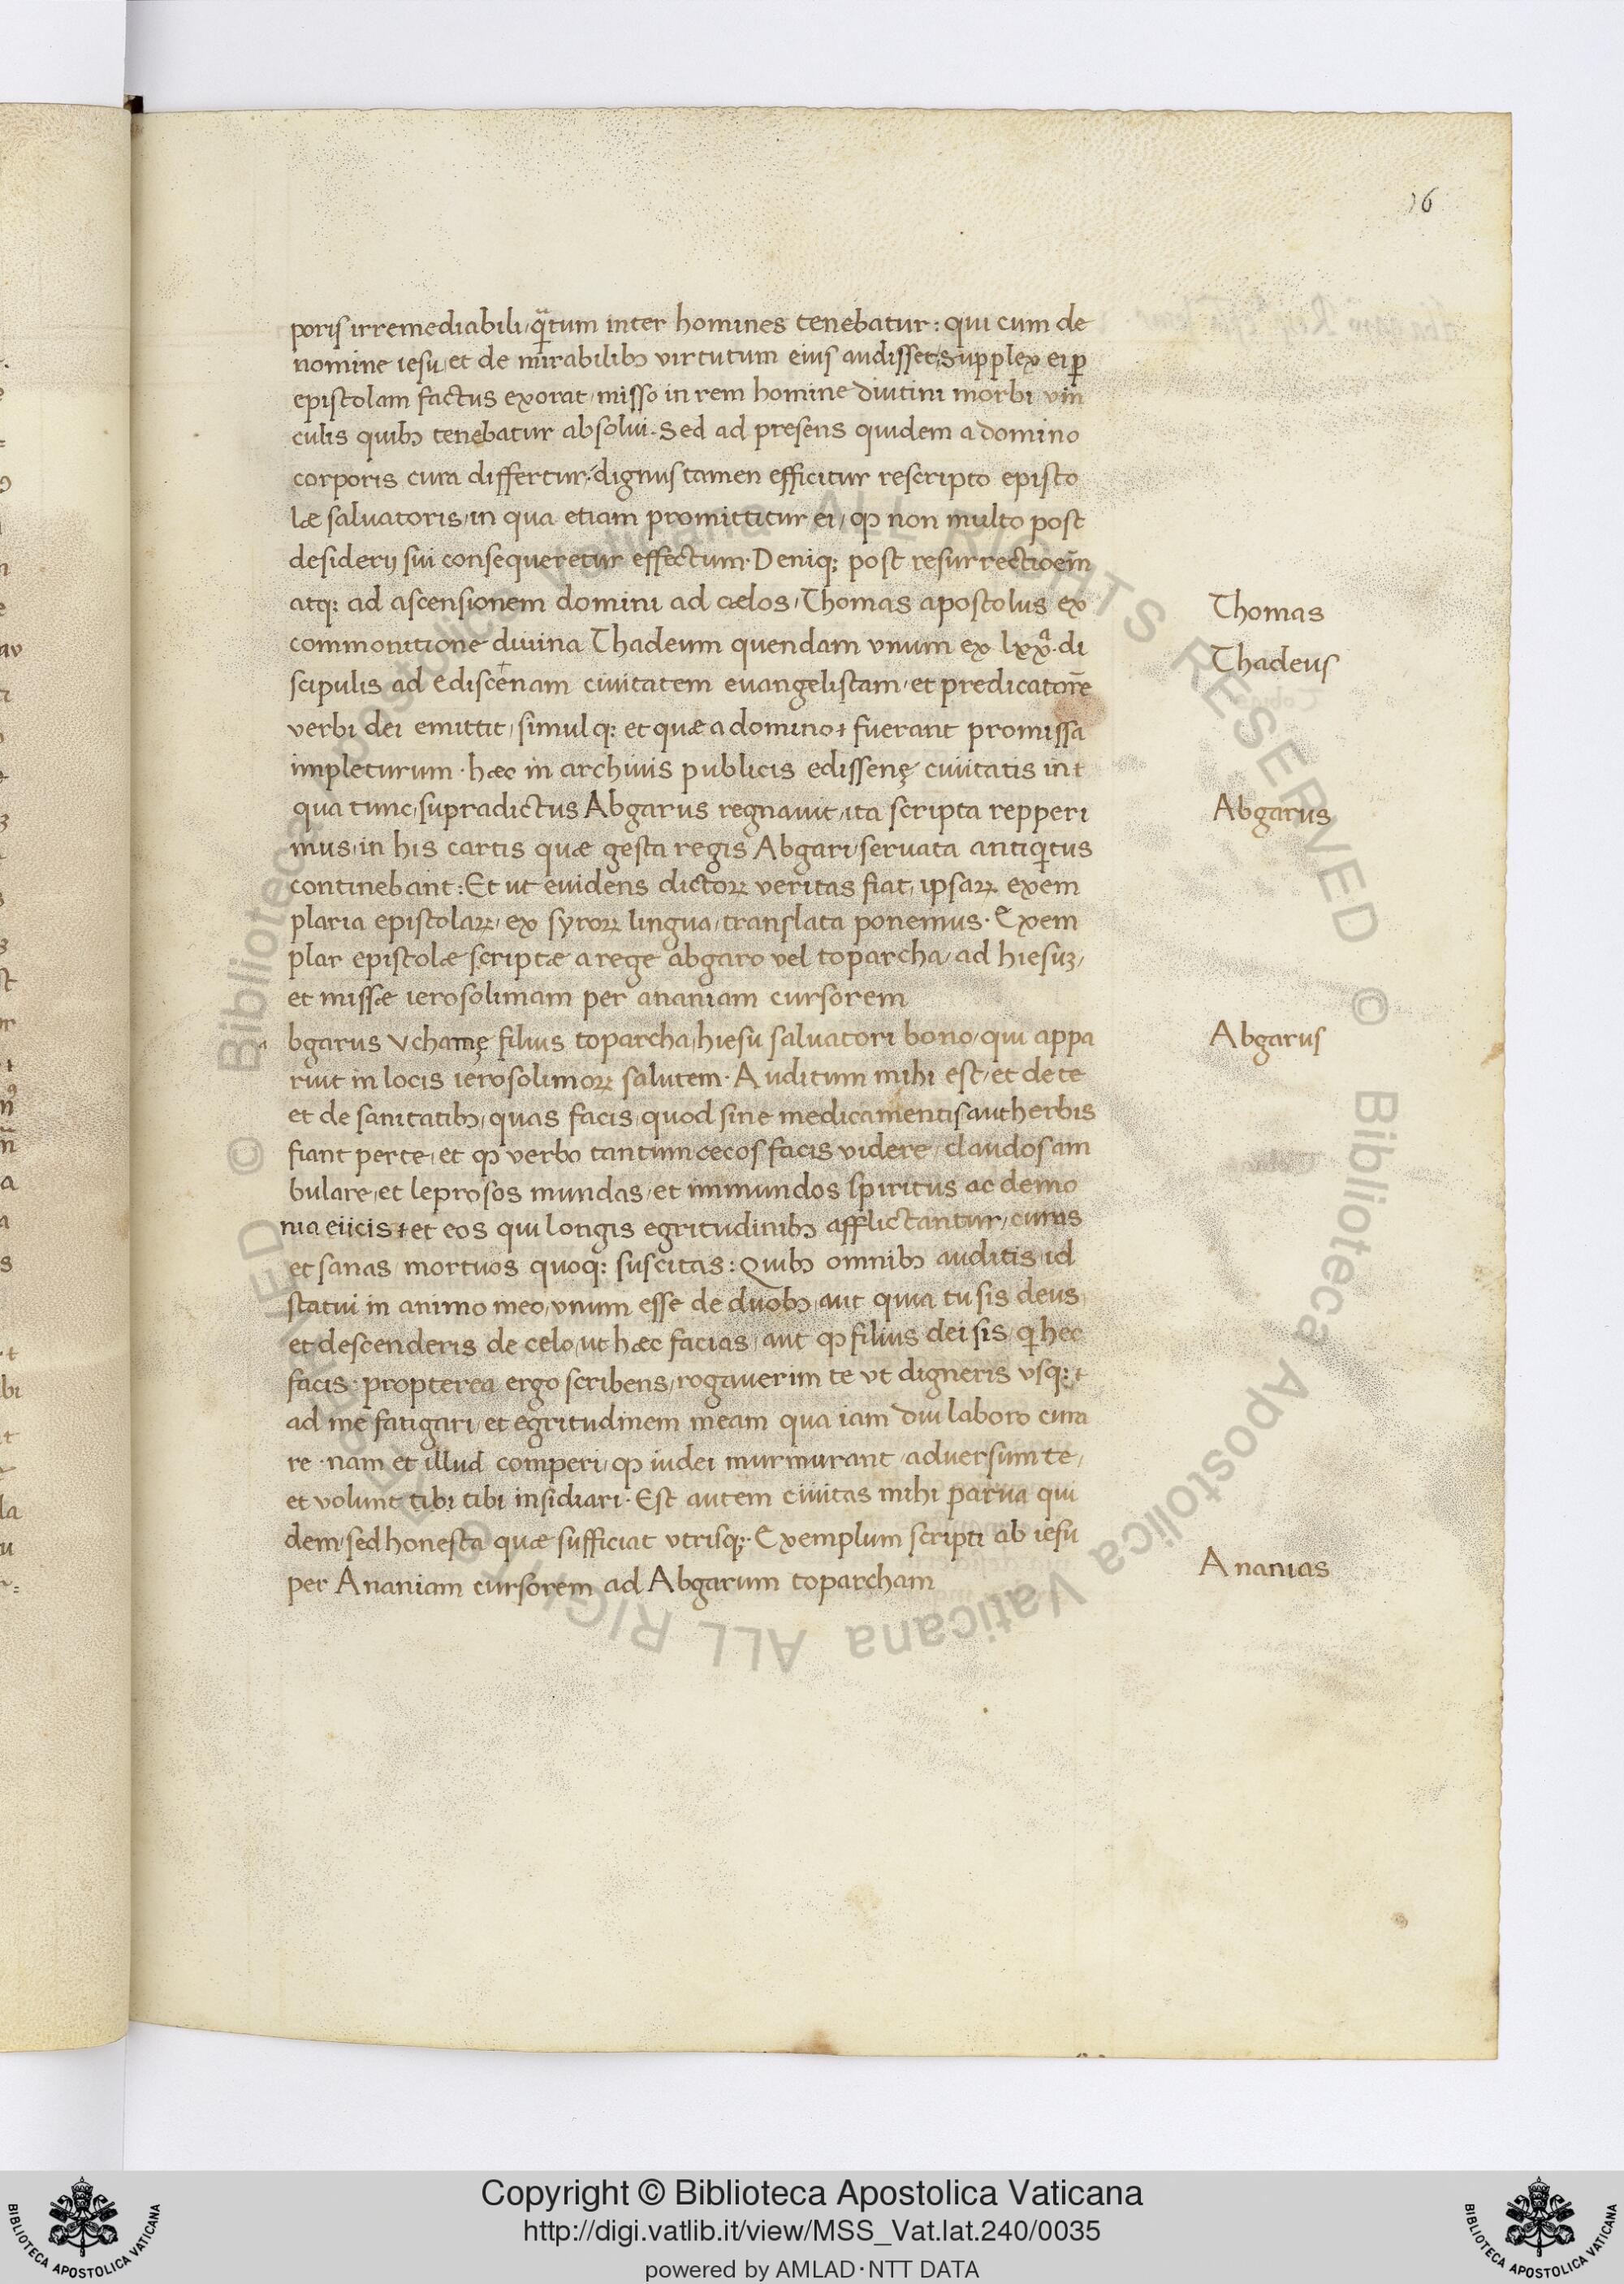 16
poris irremediabili, qͣtum inter homines tenebatur: qui cum de
nomine iesu, et de mirabilibꝫ virtutum eius audisset, supplex ei ꝑ
epistolam factus exorat, misso in rem homine diutini morbi vin
culis quibꝫ tenebatur absolui. Sed ad presens quidem a domino
corporis cura differtur, dignus tamen efficitur rescripto episto
læ saluatoris, in qua etiam promittitur ei, ꝙ non multo post
desiderij sui consequeretur effectum. Deniqꝫ post resurrectioēm
atqꝫ ad ascensionem domini ad cælos, Thomas apostolus ex
commonitione diuina Thadeum quendam vnum ex lxxͣ. di
scipulis ad ediscenam ciuitatem euangelistam, et predicatorē
verbi dei emittit, simulqꝫ et quæ a domino fuerant promissa
impleturum. hæc in archiuis publicis edissenę ciuitatis in
qua tunc, supradictus Abgarus regnauit, ita scripta repperi
mus, in his cartis quæ gesta regis Abgari, seruata antiqͥtus
continebant: Et ut euidens dictoꝝ veritas fiat, ipsaꝝ exem
plaria epistolaꝝ, ex syroꝝ lingua, translata ponemus. Exem
plar epistolæ scriptæ a rege abgaro vel toparcha, ad hiesuꝫ,
et missæ ierosolimam per ananiam cursorem
a bgarus Vchamę filius toparcha, hiesu saluatori bono, qui appa
ruit in locis ierosolimoꝝ salutem. Auditum mihi est, et de te
et de sanitatibꝫ, quas facis, quod sine medicamentis aut herbis
fiant per te, et ꝙ verbo tantum cecos facis videre, claudos am
bulare, et leprosos mundas, et immundos spiritus ac demo
nia eiicis, et eos qui longis egritudinibꝫ afflictantur, curas
et sanas mortuos quoqꝫ suscitas: Quibꝫ omnibꝫ auditis, id
statui in animo meo, vnum esse de duobꝫ, aut quia tu sis deus
et descenderis de celo, ut hæc facias, aut ꝙ filius dei sis, qͥ hec
facis. propterea ergo scribens, rogauerim te vt digneris vsqꝫ
ad me fatigari, et egritudinem meam qua iam diu laboro cura
re. nam et illud comperi, ꝙ iudei murmurant, aduersum te,
et volunt tibi tibi insidiari. Est autem ciuitas mihi parua qui
dem, sed honesta quæ sufficiat vtrisqꝫ. Exemplum scripti ab iesu
per Ananiam cursorem ad Abgarum toparcham
Thomas
Thadeus
Abgarus
Abgarus
Ananias
© Biblioteca Apostolica Vaticana ALL RIGHTS RESERVED © Biblioteca Apostolica Vaticana ALL RIGHTS RESERVED
BIBLIOTECA APOSTOLICA VATICANA
Copyright © Biblioteca Apostolica Vaticana
http://digi.vatlib.it/view/MSS_Vat.lat.240/0035
powered by AMLAD·NTT DATA
BIBLIOTECA APOSTOLICA VATICANA